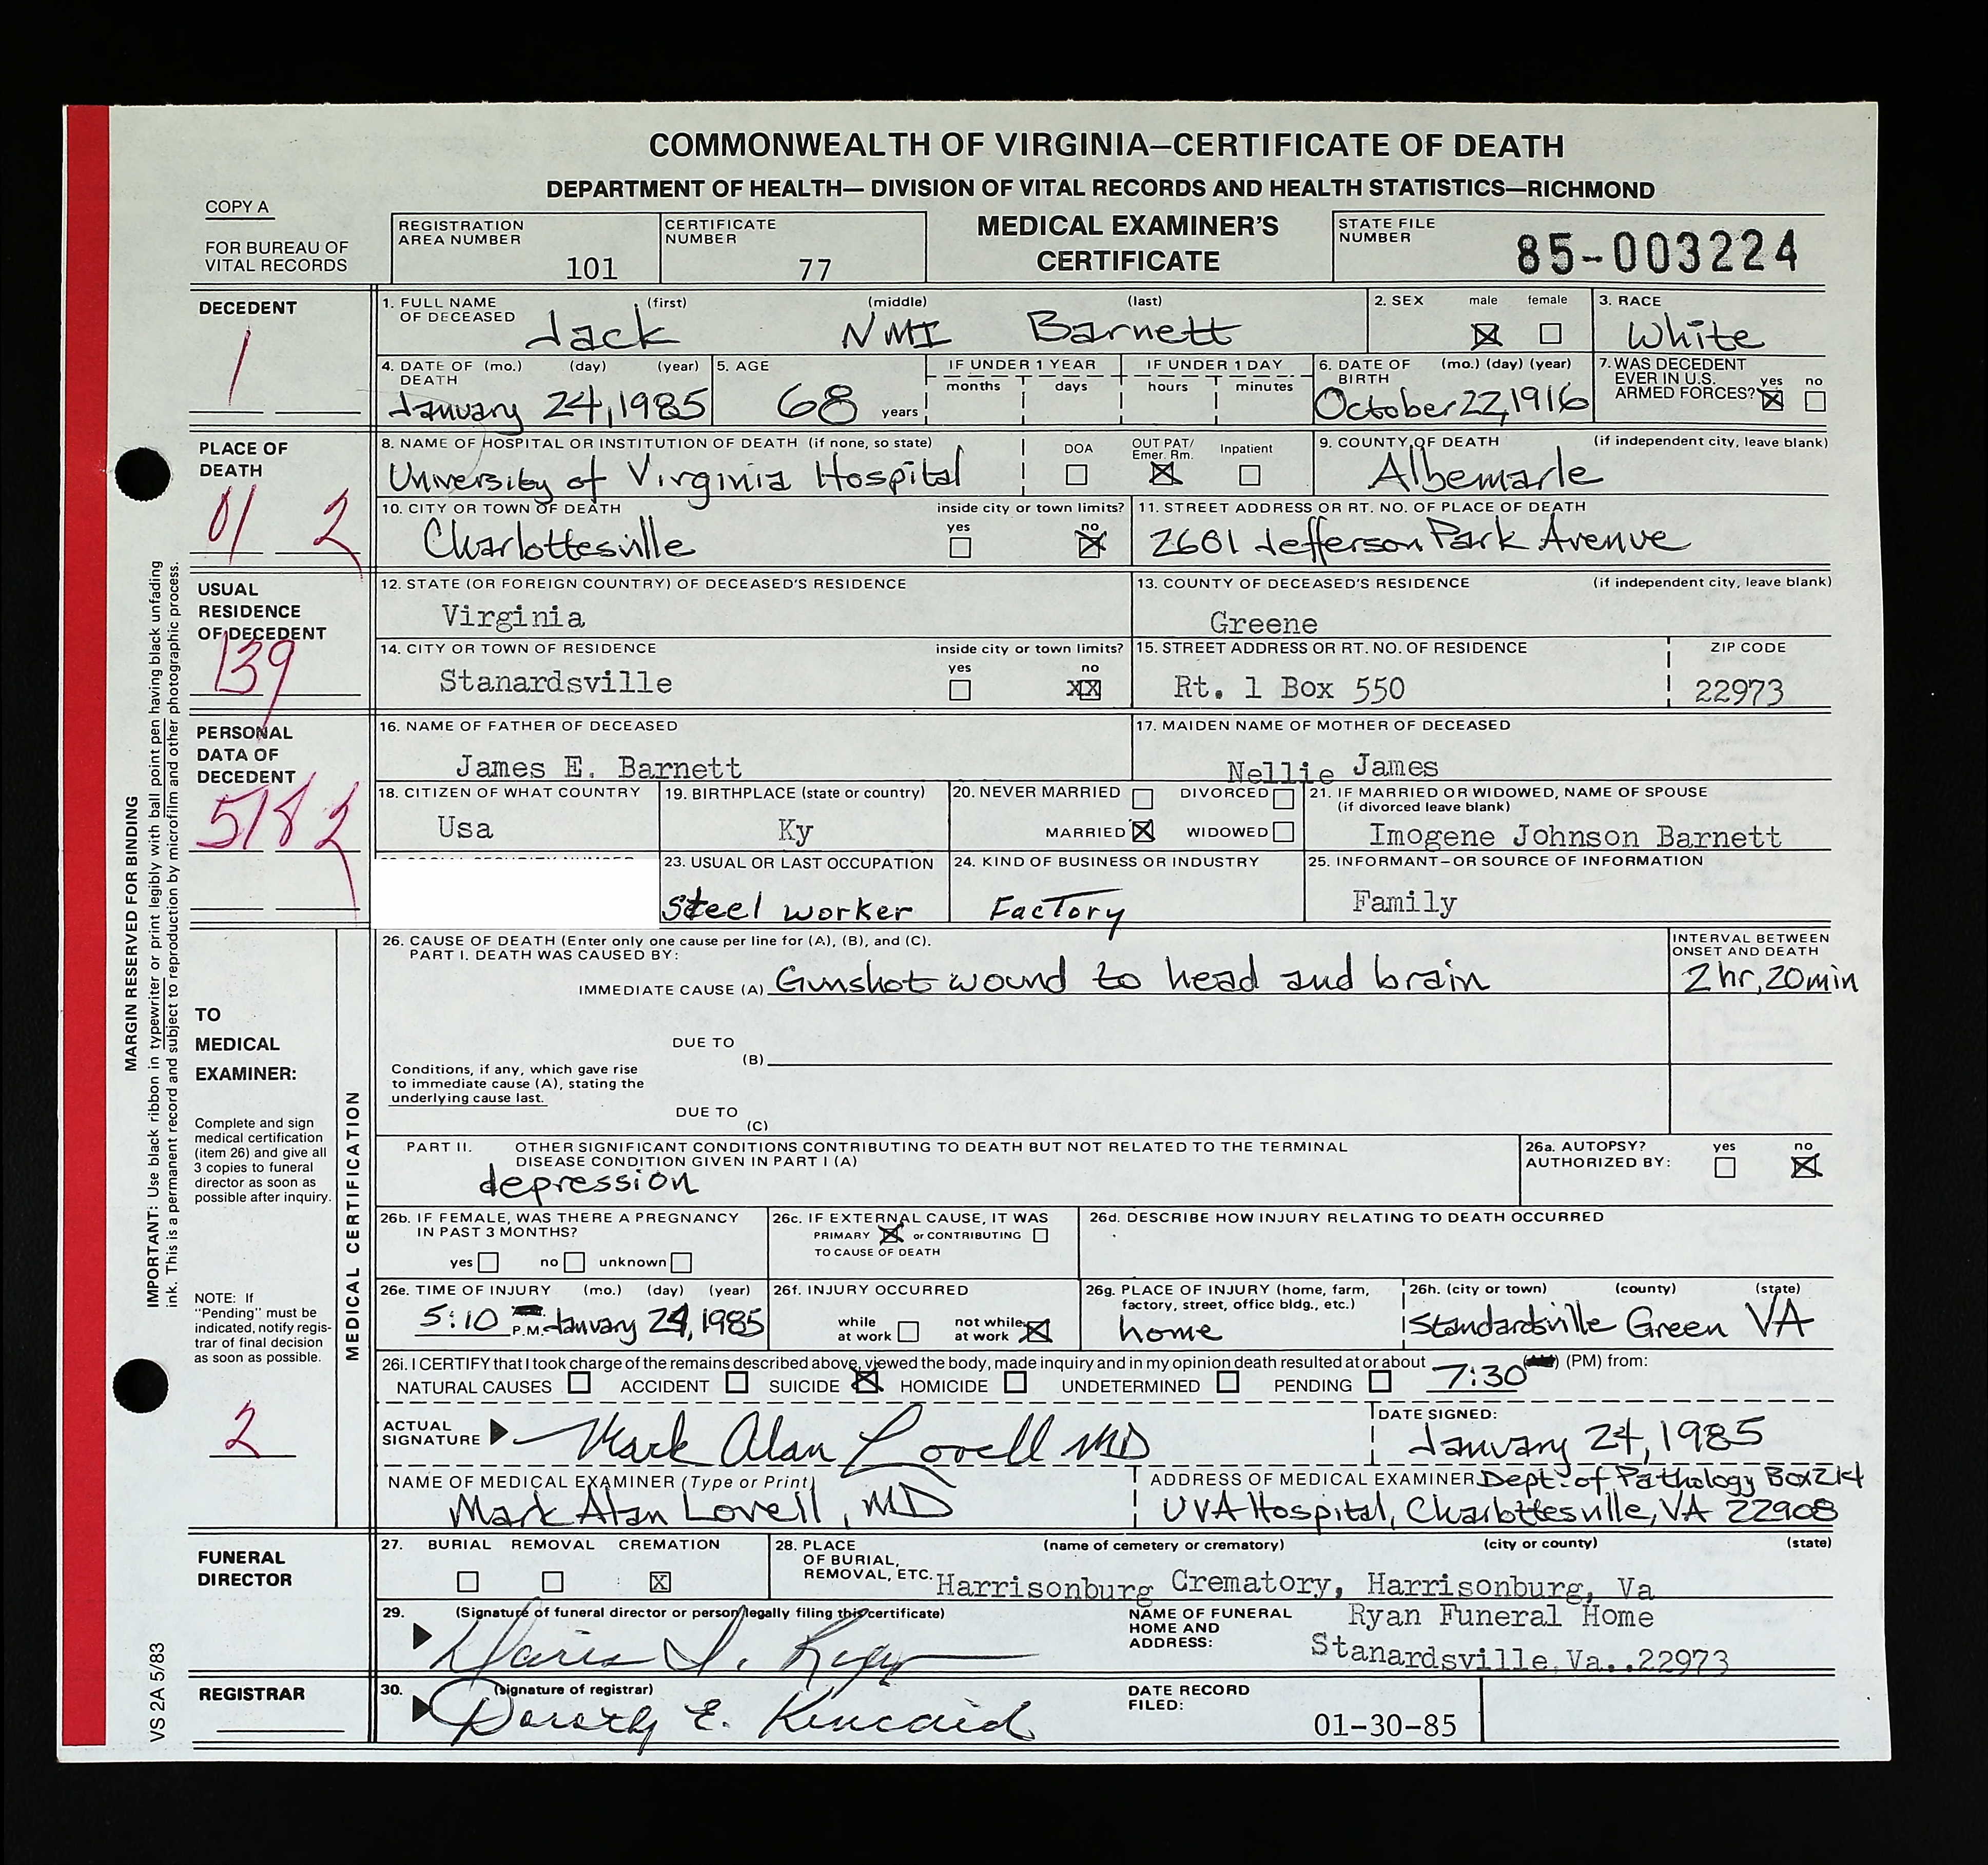 COMMONWEALTH OF VIRGINIA—CERTIFICATE OF DEATH
DEPARTMENT OF HEALTH— DIVISION OF VITAL RECORDS AND HEALTH STATISTICS—RICHMOND
COPY A
FOR BUREAU OF
VITAL RECORDS
REGISTRATION
AREA NUMBER
101
CERTIFICATE
NUMBER
77
MEDICAL EXAMINER'S
CERTIFICATE
STATE FILE
NUMBER
85-003224
DECEDENT
1
1. FULL NAME (first) (middle) (last)
OF DECEASED
Jack NMI Barnett
2. SEX male female
3. RACE
White
4. DATE OF (mo.) (day) (year)
DEATH
January 24, 1985
5. AGE
68 years
IF UNDER 1 YEAR
months days
IF UNDER 1 DAY
hours minutes
6. DATE OF (mo.) (day) (year)
BIRTH
October 22, 1916
7. WAS DECEDENT
EVER IN U.S. yes no
ARMED FORCES?
PLACE OF
DEATH
01 2
8. NAME OF HOSPITAL OR INSTITUTION OF DEATH (if none, so state)
University of Virginia Hospital
DOA
OUT PAT/
Emer. Rm.
Inpatient
9. COUNTY OF DEATH (if independent city, leave blank)
Albemarle
10. CITY OR TOWN OF DEATH inside city or town limits?
yes no
Charlottesville
11. STREET ADDRESS OR RT. NO. OF PLACE OF DEATH
2601 Jefferson Park Avenue
USUAL
RESIDENCE
OF DECEDENT
139
12. STATE (OR FOREIGN COUNTRY) OF DECEASED'S RESIDENCE
Virginia
13. COUNTY OF DECEASED'S RESIDENCE (if independent city, leave blank)
Greene
14. CITY OR TOWN OF RESIDENCE inside city or town limits?
yes no
Stanardsville XX
15. STREET ADDRESS OR RT. NO. OF RESIDENCE
Rt. 1 Box 550
ZIP CODE
22973
PERSONAL
DATA OF
DECEDENT
16. NAME OF FATHER OF DECEASED
James E. Barnett
17. MAIDEN NAME OF MOTHER OF DECEASED
Nellie James
18. CITIZEN OF WHAT COUNTRY
Usa
19. BIRTHPLACE (state or country)
Ky
20. NEVER MARRIED DIVORCED
MARRIED WIDOWED
21. IF MARRIED OR WIDOWED, NAME OF SPOUSE
(if divorced leave blank)
Imogene Johnson Barnett
23. USUAL OR LAST OCCUPATION
Steel worker
24. KIND OF BUSINESS OR INDUSTRY
Factory
25. INFORMANT—OR SOURCE OF INFORMATION
Family
MARGIN RESERVED FOR BINDING
IMPORTANT: Use black ribbon in typewriter or print legibly with ball point pen having black unfading
ink. This is a permanent record and subject to reproduction by microfilm and other photographic process.
VS 2A 5/83
TO
MEDICAL
EXAMINER:
Complete and sign
medical certification
(item 26) and give all
3 copies to funeral
director as soon as
possible after inquiry.
NOTE: If
"Pending" must be
indicated, notify regis-
trar of final decision
as soon as possible.
2
MEDICAL CERTIFICATION
26. CAUSE OF DEATH (Enter only one cause per line for (A), (B), and (C).
PART I. DEATH WAS CAUSED BY:
IMMEDIATE CAUSE (A) Gunshot wound to head and brain
INTERVAL BETWEEN
ONSET AND DEATH
2 hr, 20 min
DUE TO
(B)
Conditions, if any, which gave rise
to immediate cause (A), stating the
underlying cause last.
DUE TO
(C)
PART II. OTHER SIGNIFICANT CONDITIONS CONTRIBUTING TO DEATH BUT NOT RELATED TO THE TERMINAL
DISEASE CONDITION GIVEN IN PART I (A)
depression
26a. AUTOPSY? yes no
AUTHORIZED BY:
26b. IF FEMALE, WAS THERE A PREGNANCY
IN PAST 3 MONTHS?
yes no unknown
26c. IF EXTERNAL CAUSE, IT WAS
PRIMARY or CONTRIBUTING
TO CAUSE OF DEATH
26d. DESCRIBE HOW INJURY RELATING TO DEATH OCCURRED
26e. TIME OF INJURY (mo.) (day) (year)
5:10 P.M. January 24, 1985
26f. INJURY OCCURRED
while
at work
not while
at work
26g. PLACE OF INJURY (home, farm,
factory, street, office bldg., etc.)
home
26h. (city or town) (county) (state)
Standardsville Green VA
26i. I CERTIFY that I took charge of the remains described above, viewed the body, made inquiry and in my opinion death resulted at or about 7:30 (PM) from:
NATURAL CAUSES ACCIDENT SUICIDE HOMICIDE UNDETERMINED PENDING
ACTUAL
SIGNATURE
Mark Alan Lovell MD
DATE SIGNED:
January 24, 1985
NAME OF MEDICAL EXAMINER (Type or Print)
Mark Alan Lovell, MD
ADDRESS OF MEDICAL EXAMINER Dept. of Pathology Box 214
UVA Hospital, Charlottesville, VA 22908
FUNERAL
DIRECTOR
27. BURIAL REMOVAL CREMATION
X
28. PLACE (name of cemetery or crematory) (city or county) (state)
OF BURIAL,
REMOVAL, ETC. Harrisonburg Crematory, Harrisonburg, Va
29. (Signature of funeral director or person legally filing this certificate)
NAME OF FUNERAL
HOME AND
ADDRESS:
Ryan Funeral Home
Stanardsville, Va. 22973
REGISTRAR
30. (signature of registrar)
Dorothy E. Kincaid
DATE RECORD
FILED:
01-30-85